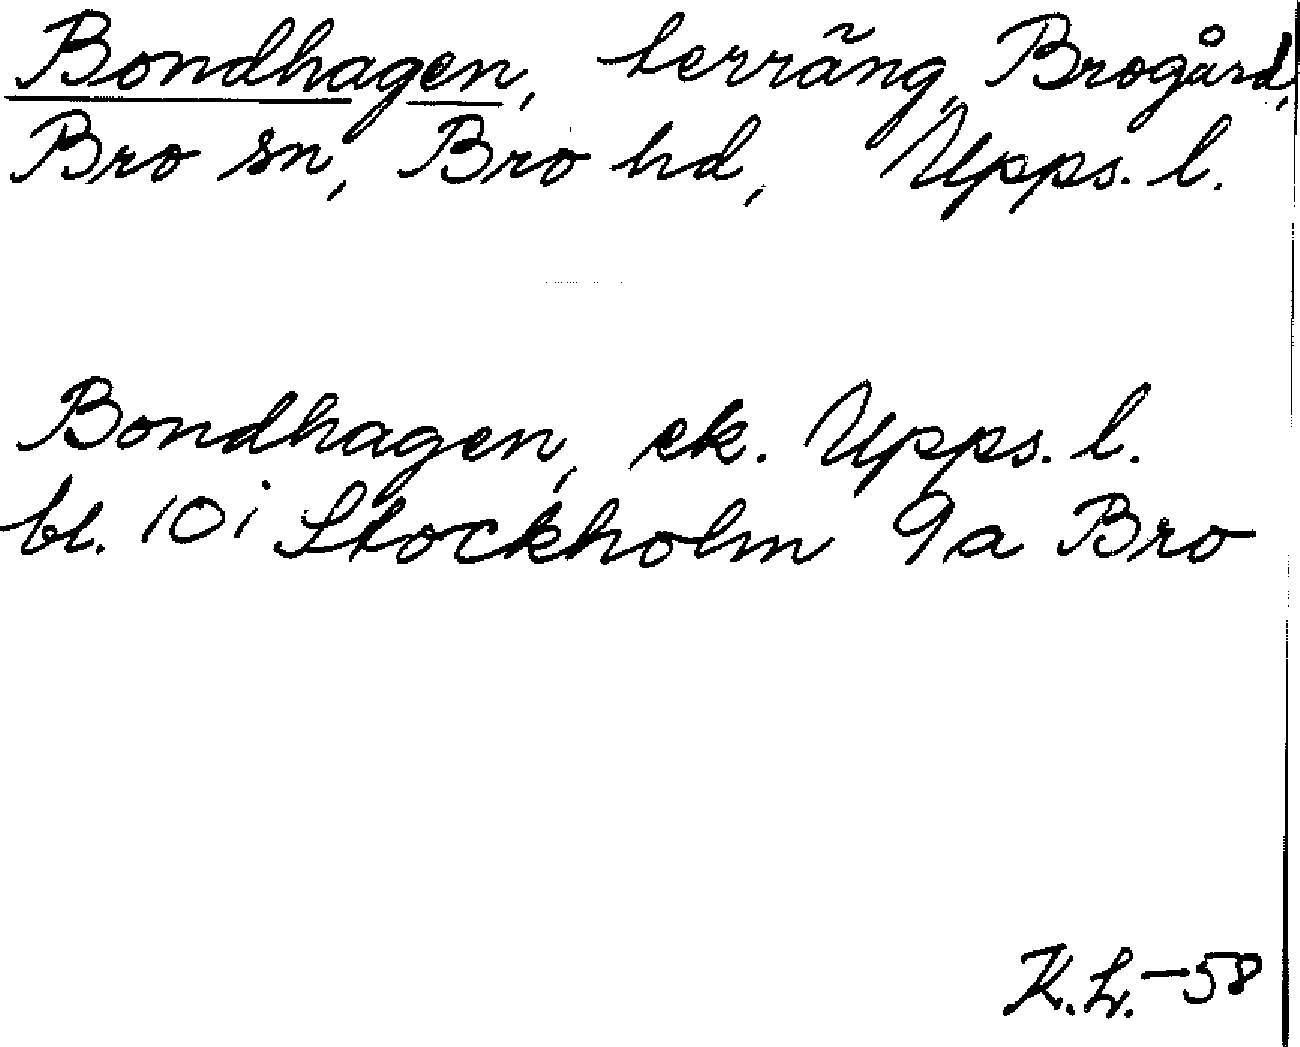 Bondhagen, terräng, Brogård,
Bro sn, Bro hd, Upps. l.
Bondhagen, ek. Upps. l.
bl. 10 i Stockholm 9a Bro
K.L.-58